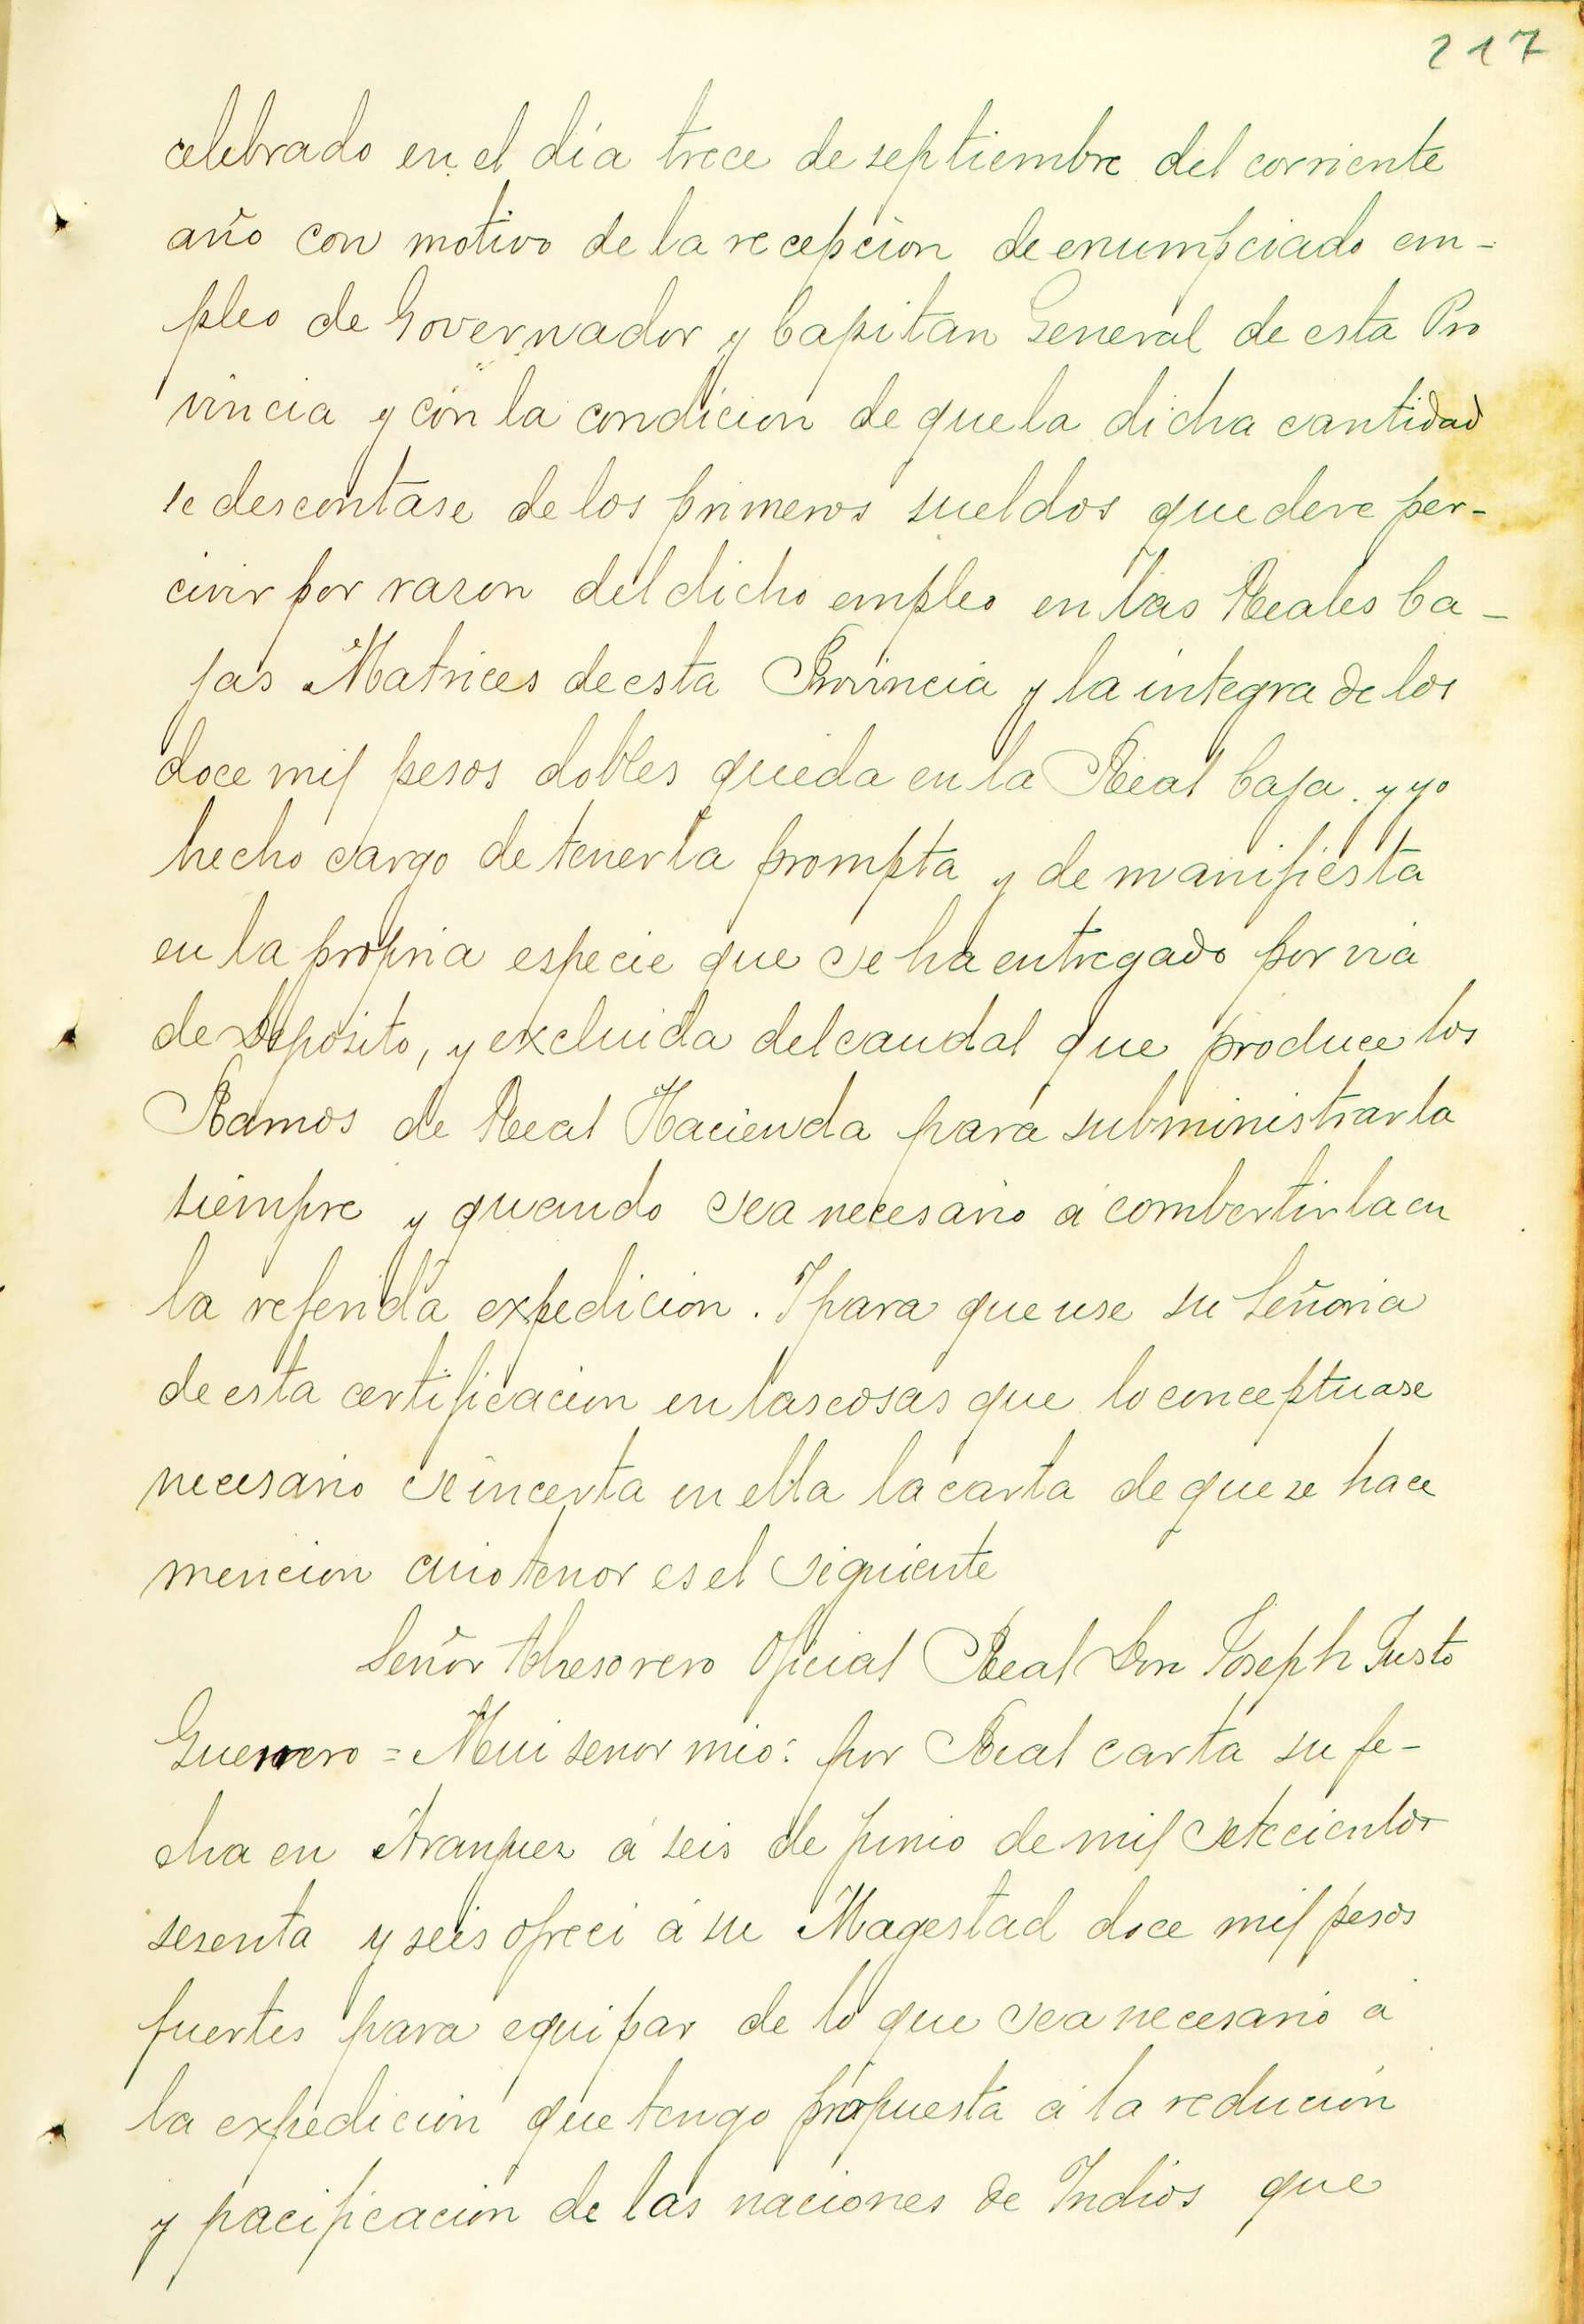 217
celebrado en el día trece de septiembre del corriente
año con motivo de la recepcion de enumpciado em-
pleo de Governador y Capitan General de esta Pro
vincia y con la condicion de que la dicha cantidad
se descontase de los primeros sueldos que deve per-
civir por razon del dicho empleo en las Reales Ca-
jas Matrices de esta Provincia y la integra de los
doce mil pesos dobles queda en la Real Caja. y yo
hecho cargo de tenerla prompta y de manifiesta
en la propria especie que se ha entregado por via
de Deposito, y excluida del caudal que produce los
Ramos de Real Hacienda para subministrarla
siempre y quando sea necesario a combertirla en
la referida expedicion. I para que use su Señoria
de esta certificacion en las cosas que lo conceptuase
necesario se incerta en ella la carta de que se hace
mencion cuio tenor es el siguiente
Señor Thesorero Oficial Real Don Joseph Justo
Guerrero = Mui senor mio: por Real carta su fe-
cha en Aranjuez á seis de junio de mil setecientos
sesenta y seis ofreci á su Magestad doce mil pesos
fuertes para equipar de lo que sea necesario a
la expedicion que tengo propuesta a la reducion
y pacificacion de las naciones de Indios que